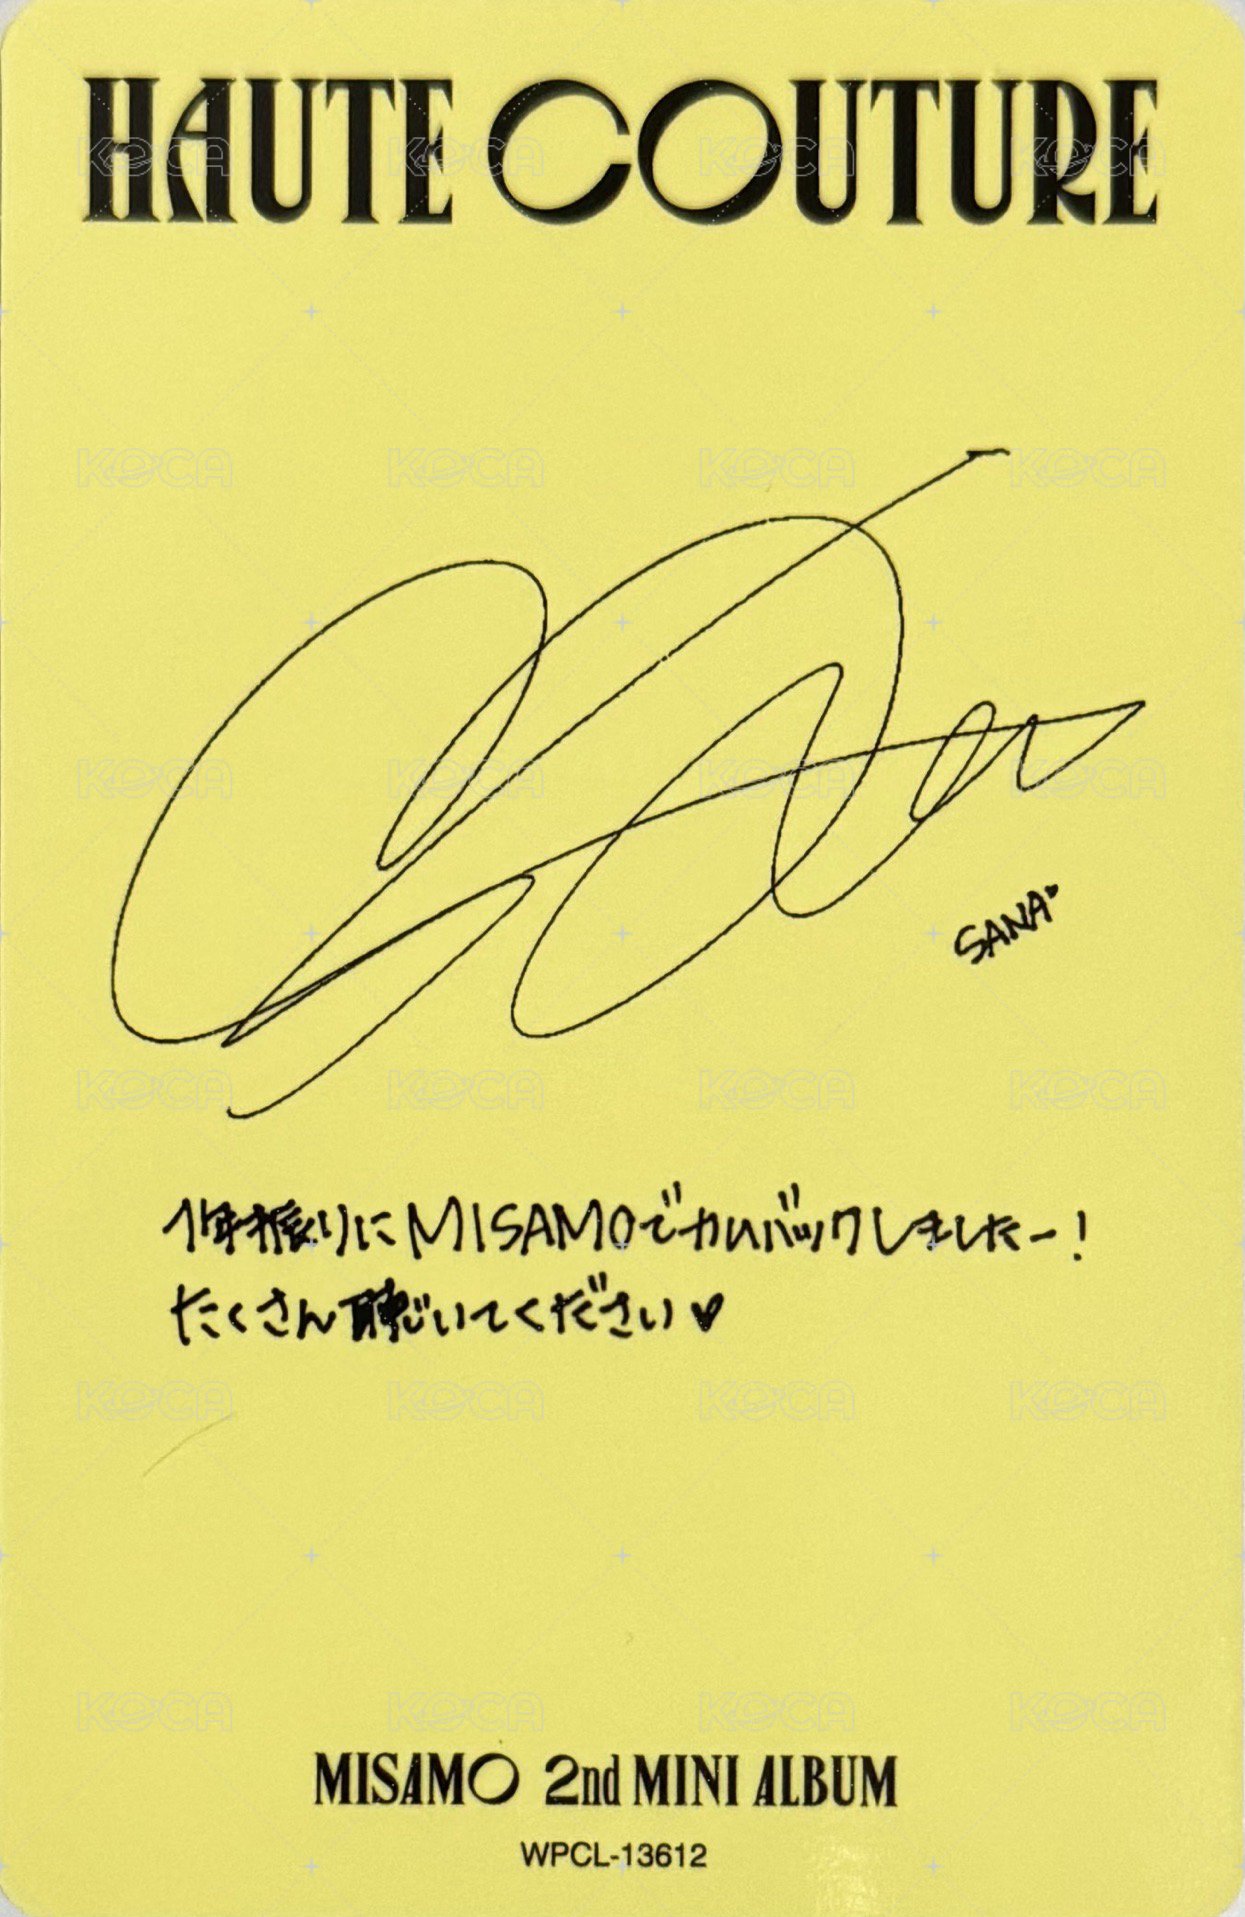 HAUTE COUTURE
SANA♥
1年振りにMISAMOでカムバックしましたー!
たくさん聴いてください♥
MISAMO 2nd MINI ALBUM
WPCL-13612
KOCA